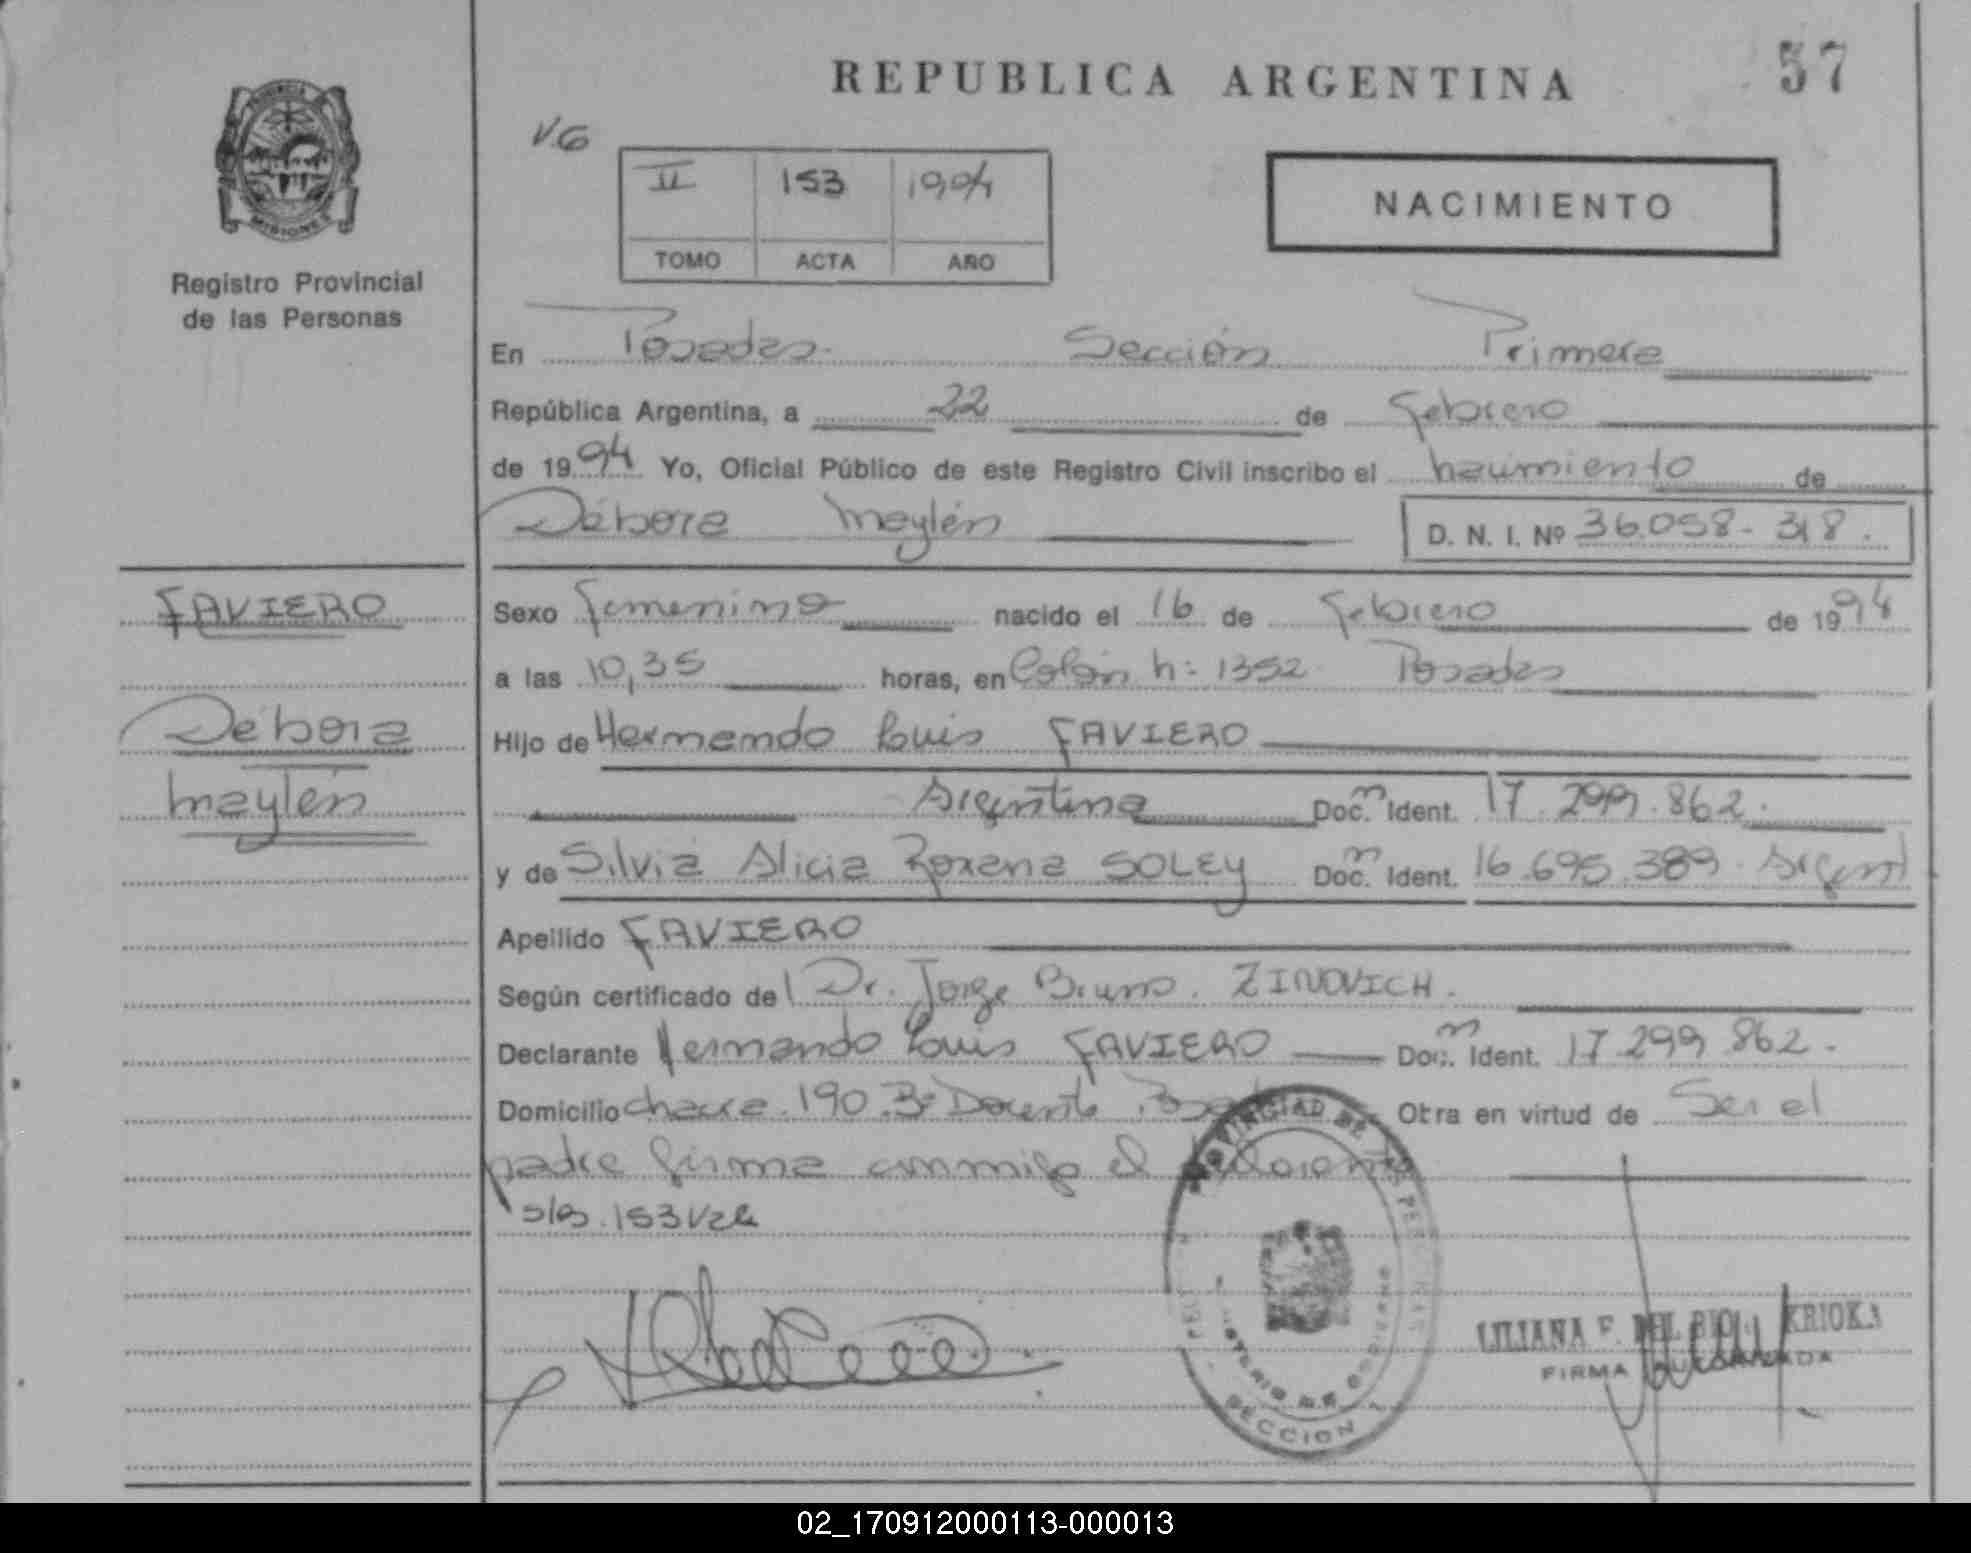 REPUBLICA ARGENTINA
57
V.G
II 153 1994
TOMO ACTA AÑO
NACIMIENTO
MISIONES
Registro Provincial
de las Personas
En Posadas Sección Primera
República Argentina, a 22 de Febrero
de 1994 Yo, Oficial Público de este Registro Civil inscribo el nacimiento de
Débora Maylén D. N. I. Nº 36.058-318.
FAVIERO
Débora
Maylén
Sexo Femenino nacido el 16 de Febrero de 1994
a las 10,35 horas, en Colón n: 1352 Posadas
Hijo de Hernando Luis FAVIERO
Argentina Doc. Ident. 17.299.862.
y de Silvia Alicia Roxana SOLEY Doc. Ident. 16.695.389 Argent
Apellido FAVIERO
Según certificado del Dr. Jorge Bruno. ZINOVICH.
Declarante Hernando Luis FAVIERO Doc. Ident. 17.299.862.
Domicilio chacra 190 Bº Docente Obra en virtud de Ser el
padre firma conmigo el
153
LILIANA F. DEL KRIOKA
FIRMA AUTORIZADA
SECCION 1
02_170912000113-000013